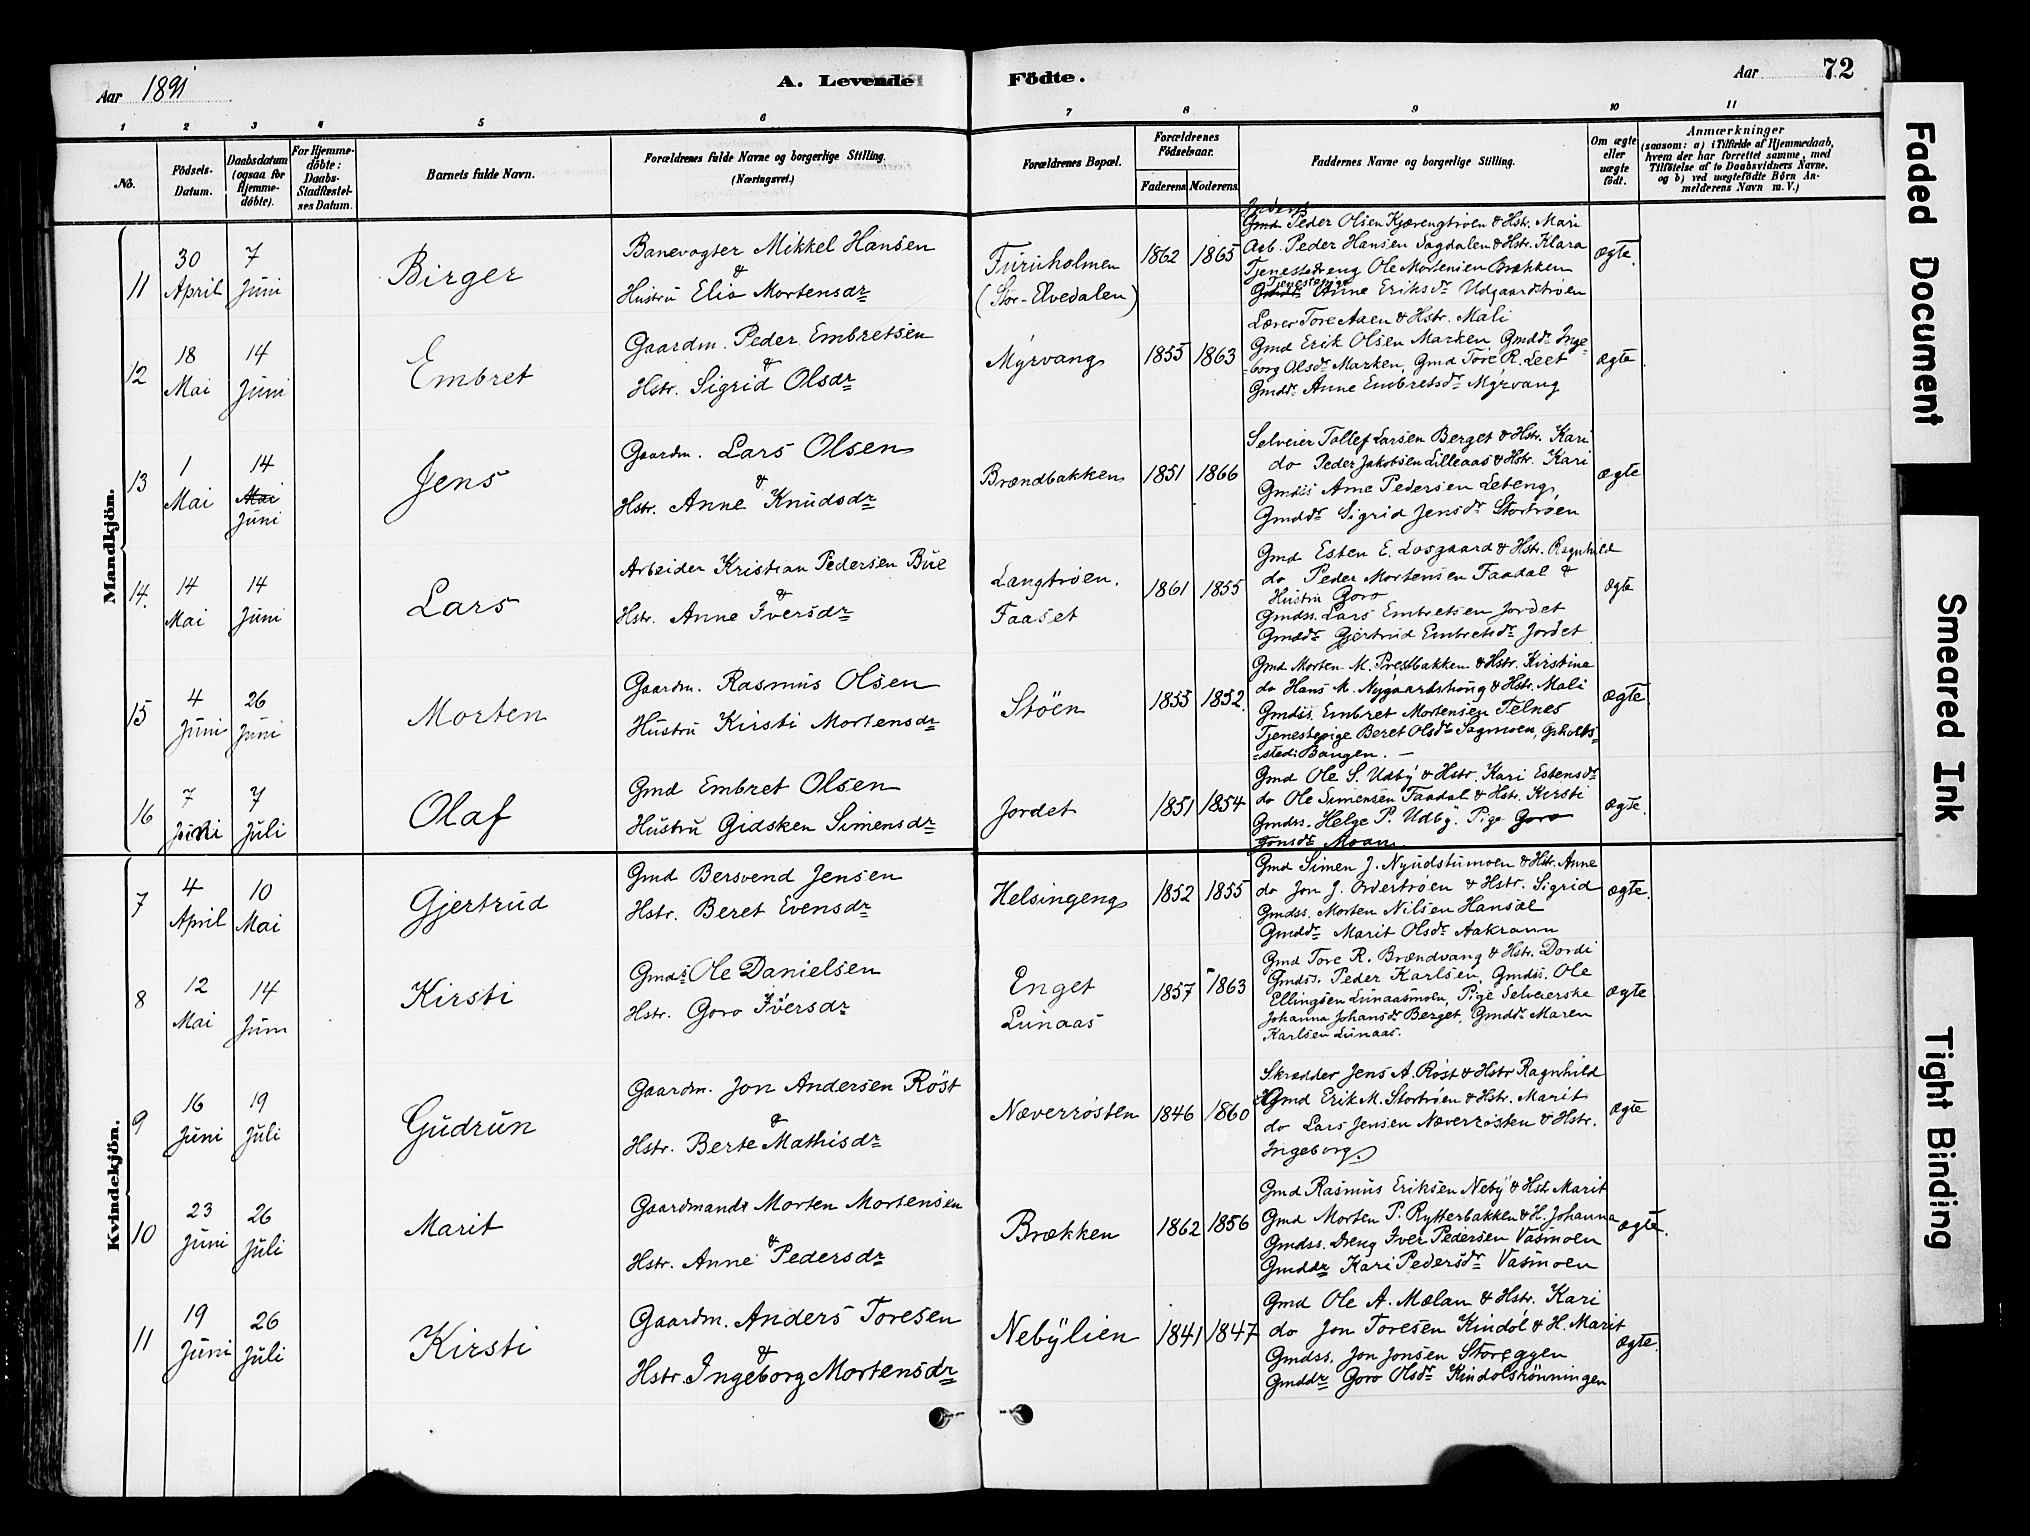 Aar 1891
A. Levende
Födte.
Aar
72
1 2 3 4 5 6 7 8 9 10 11
No.
Födsels-
Datum.
Daabsdatum
(ogsaa for
Hjemme-
döbte).
For Hjemme-
döbte:
Daabs-
Stadfæstel-
ses Datum.
Barnets fulde Navn.
Forældrenes fulde Navne og borgerlige Stilling.
(Næringsvei.)
Forældrenes Bopæl.
Forældrenes
Födselsaar.
Faderens Moderens.
Faddernes Navne og borgerlige Stilling.
Om ægte
eller
uægte
födt.
Anmærkninger
(saasom: a) i Tilfælde af Hjemmedaab,
hvem der har forrettet samme, med
Tilföielse af to Daabsvidners Navne,
og b) ved uægtefödte Börn An-
melderens Navn m. V.)
Mandkjön.
11
30
April
7
Juni
Birger
Banevogter Mikkel Hansen
&
Hustru Elia Mortensdr
Furuholmen
(Stor-Elvedalen)
1862 1865
Gmd Peder Olsen Kjærengtrøen & Hstr. Mari
Arb. Peder Hansen Sagdalen & Hstr. Klara
Tjenestedreng Ole Mortensen Brækken
Tjenestepige
Anne Eriksdr Udgaardstrøen
ægte.
12
18
Mai
14
Juni
Embret
Gaardm. Peder Embretsen
&
Hstr. Sigrid Olsdr
Myrvang
1855 1863
Lærer Tore Aaen & Hstr. Mali
Gmd Erik Olsen Marken, Gmddr Inge-
-borg Olsdr Marken, Gmd Tore R. Leet
Gmddr Anne Embretsdr Myrvang
ægte
13
1
Mai
14
Mai
Juni
Jens
Gaardm. Lars Olsen
&
Hstr. Anne Knudsdr
Brændbakken
1851 1866
Selveier Tollef Larsen Berget & Hstr. Kari
do Peder Jakobsen Lilleaas & Hstr. Kari
Gmdss Arne Pedersen Leteng
Gmddr Sigrid Jensdr Stortrøen
ægte
14.
14
Mai
14
Juni
Lars
Arbeider Kristian Pedersen Bue
&
Hstr. Anne Iversdr
Langtrøen.
Faaset
1861 1855
Gmd Esten E. Losgaard & Hstr. Ragnhild
do Peder Mortensen Faadal &
Hustru Goro
Gmdss. Lars Embretsen Jordet
Gmddr Gjertrud Embretsdr Jordet
ægte
15
4
Juni
26
Juni
Morten
Gaardm. Rasmus Olsen
Hustru Kirsti Mortensdr
Støen
1855 1852.
Gmd Morten M. Prestbakken & Hstr. Kirstine
do Hans M. Nygaardshoug & Hstr. Mali
Gmdss. Embret Mortensen Telnes
Tjenestepige Beret Olsdr Sagmoen, Opholds-
-sted: Bangen. —
ægte
16
7
Juni
7
Juli
Olaf
Gmd Embret Olsen
Hustru Gidsken Simensdr
Jordet
1851 1854
Gmd Ole S. Udby & Hstr. Kari Estensdr
do Ole Simensen Faadal & Hstr. Kirsti
Gmdss. Helge P. Udby. Pige Goro
Jonsdr Moan.
ægte.
Kvindekjön.
7
4
April
10
Mai
Gjertrud
Gmd Bersvend Jensen
Hstr. Beret Evensdr
Helsingeng
1852 1855
Gmd Simen J. Nyudstumoen & Hstr. Anne
do Jon J. Ordertrøen & Hstr. Sigrid
Gmdss. Morten Nilsen Hansæl
Gmddr Marit Olsdr Aakrann
ægte.
8
12
Mai
14
Juni
Kirsti
Gmds Ole Danielsen
Hstr. Goro Iversdr
Enget
Lunaas
1857 1863
Gmd Tore R. Brændvang & Hstr. Dordi
Gmdss. Peder Karlsen, Gmdss. Ole
Ellingsen Lunaasmoen, Pige Selveierske
Johanna Johansdr Berget, Gmddr Maren
Karlsen Lunaas.
ægte
9
16
Juni
19
Juli
Gudrun
Gaardm. Jon Andersen Røst
&
Hstr. Berte Mathisdr
Næverrösten
1846 1860
Skrædder Jens A. Røst & Hstr Ragnhild
Gmd Erik M. Stortrøen & Hstr. Marit
do Lars Jensen Næverrösten & Hstr.
Ingeborg
ægte
10
23
Juni
26
Juli
Marit
Gaardmands Morten Mortensen
&
Hstr. Anne Pedersdr
Brækken
1862 1856
Gmd Rasmus Eriksen Neby & Hstr Marit
Gmd Morten P. Rytterbakken & H. Johanna
Gmdss. Dreng Iver Pedersen Vasmoen
Gmddr Kari Pedersdr Vasmoen
ægte.
11
19
Juni
26
Juli
Kirsti
Gaardm. Anders Toresen
&
Hstr. Ingeborg Mortensdr
Nebylien
1841 1847
Gmd Ole A. Mælan & Hstr. Kari
do Jon Toresen Kindöl & H. Marit
Gmdss. Jon Jonsen Storeggen
Gmddr Goro Olsdr Kindölsrönningen
ægte.
Faded Document
Smeared Ink
Tight Binding